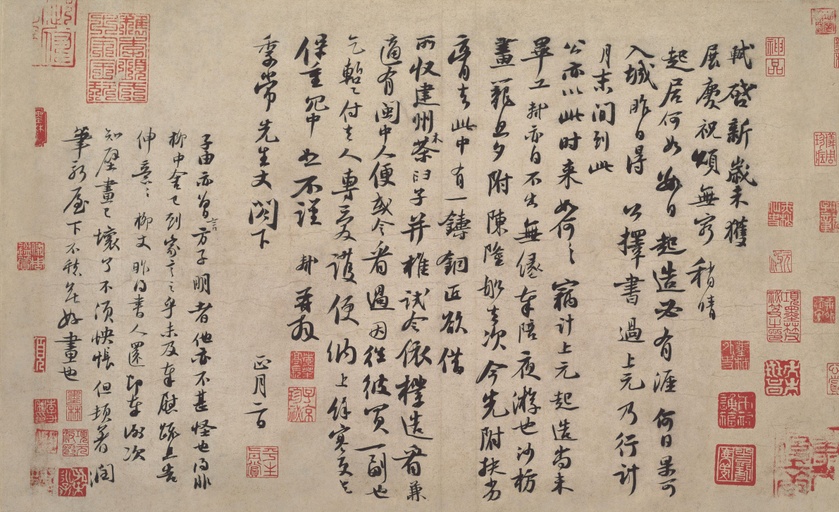 軾啟新歲未獲
展慶祝頌無窮稍晴
起居何如數日起造必有涯何日果可
入城昨日得公擇書過上元乃行計
月末間到此
公亦以此時來如何〻竊計上元起造尚未
畢工軾亦自不出無緣奉陪夜游也沙枋
畫籠旦夕附陳隆船去次今先附扶劣
膏去此中有一鑄銅匠欲借
所收建州木茶臼子并椎試令依樣造看兼
適有閩中人便或令看過因往彼買一副也
乞暫付去人專愛護便納上餘寒更乞
保重冗中恕不謹軾再拜
季常先生丈閤下
正月二日
子由亦曾言方子明者他亦不甚怪也得非
柳中舍已到家言之乎未及奉慰疏且告
伸意〻柳丈昨得書人還即奉謝次
知壁畫已壞了不須怏悵但頓著潤
筆新屋下不愁無好畫也
神品